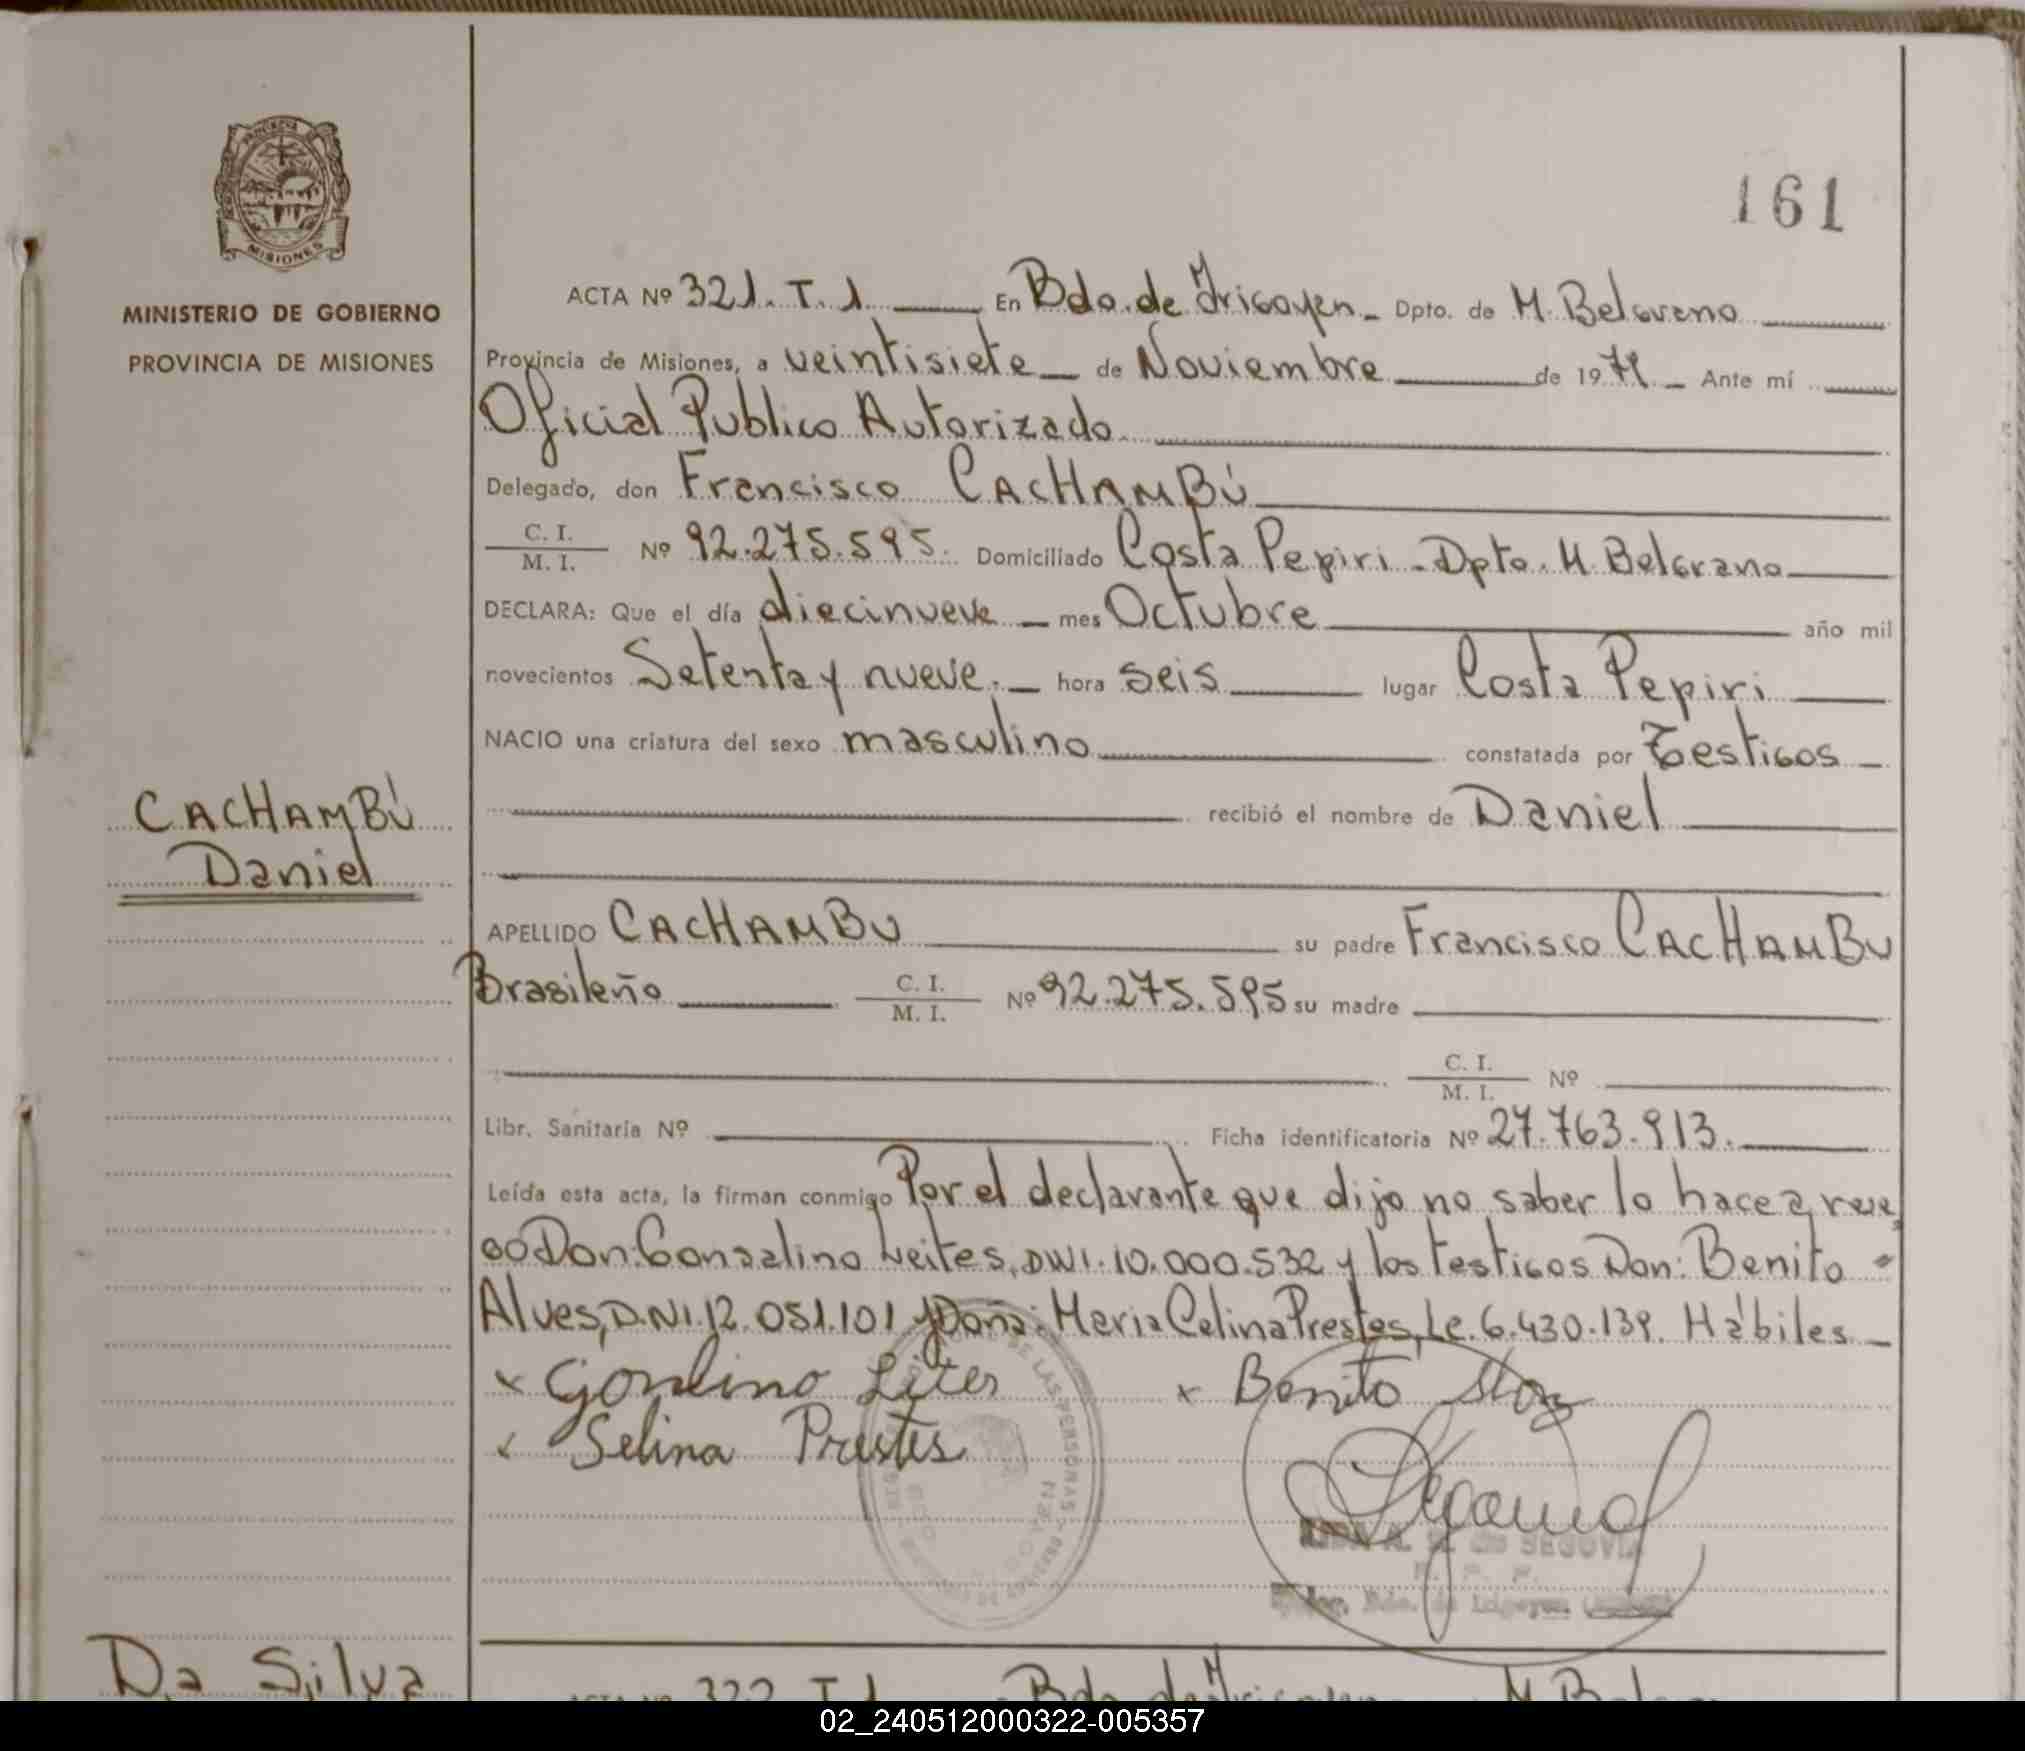 161
MINISTERIO DE GOBIERNO
PROVINCIA DE MISIONES
ACTA Nº 321. T. 1 En Bdo. de Irigoyen Dpto. de M. Belgrano
Provincia de Misiones, a veintisiete de Noviembre de 19 Ante mí
Oficial Publico Autorizado
Delegado, don Francisco CACHAMBÚ
C. I.
M. I. Nº 92.275.595. Domiciliado Costa Pepiri - Dpto. M. Belgrano
DECLARA: Que el día diecinueve mes Octubre año mil
novecientos Setenta y nueve. hora seis lugar Costa Pepiri
NACIO una criatura del sexo masculino constatada por Testigos
recibió el nombre de Daniel
CACHAMBÚ
Daniel
APELLIDO CACHAMBU su padre Francisco CACHAMBU
Brasileño C. I. M. I. Nº 92.275.595 su madre
C. I.
M. I. Nº
Libr. Sanitaria Nº Ficha identificatoria Nº 27.763.913.
Leída esta acta, la firman conmigo Por el declarante que dijo no saber lo hace a rue
go Don: Gonzalino Leites, DNI. 10.000.532 y los testigos Don: Benito
Alves, D.NI. 12.051.101 y Doña: Maria Celina Prestes, Le. 6.430.139. Hábiles
x Gonlino Lites x Benito
Selina Prestes
DE LAS PERSONAS
DE SEGOVIA
Da Silva
ACTA Nº 322 T. 1 Bdo. de Irigoyen M. Belgrano
02_240512000322-005357